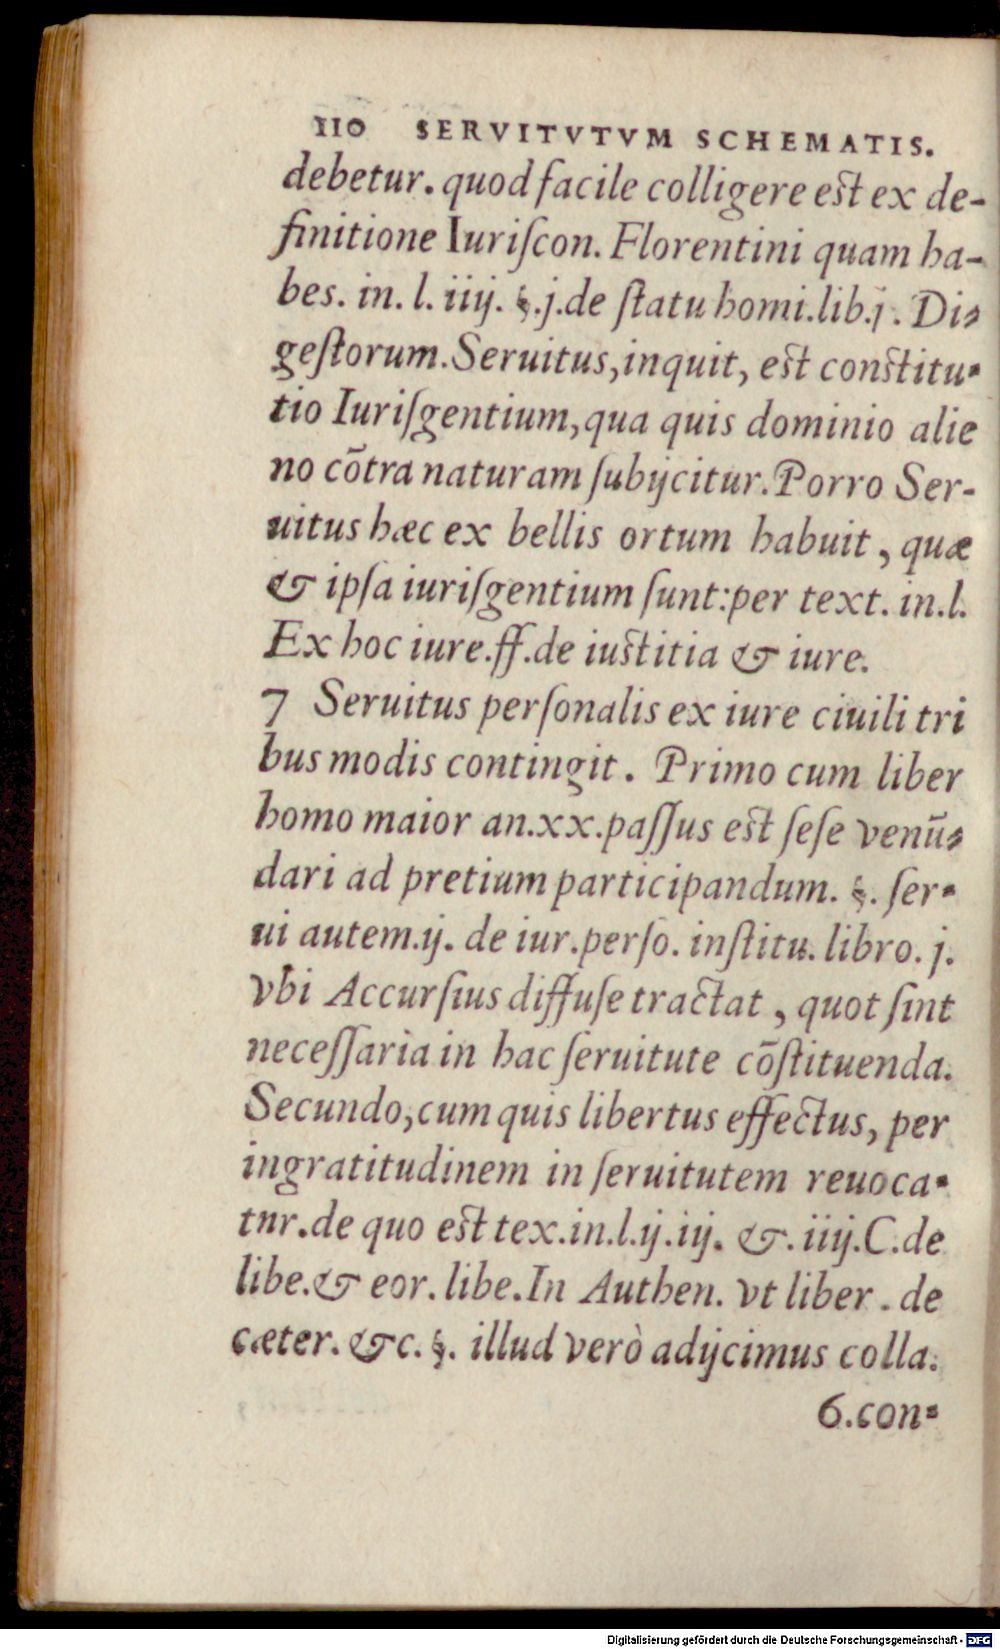 110 SERVITVTVM SCHEMATIS.
debetur. quod facile colligere est ex de-
finitione Iuriſcon. Florentini quam ha-
bes. in. l. iiij. §.j.de ſtatu homi.lib.j. Di-
geſtorum.Seruitus,inquit, est constitu-
tio Iuriſgentium,qua quis dominio alie
no cõtra naturam ſubijcitur.Porro Ser-
uitus hæc ex bellis ortum habuit, quæ
& ipſa iuriſgentium ſunt:per text. in.l.
Ex hoc iure.ff.de iustitia & iure.
7 Seruitus perſonalis ex iure ciuili tri
bus modis contingit. Primo cum liber
homo maior an.xx.paſſus est ſeſe venũ-
dari ad pretium participandum. §. ſer-
ui autem.ij. de iur.perſo. inſtitu. libro. j.
vbi Accurſius diffuſe tractat, quot ſint
neceſſaria in hac ſeruitute cõſtituenda.
Secundo,cum quis libertus effectus, per
ingratitudinem in ſeruitutem reuoca-
tnr.de quo est tex.in.l.ij.iij. &. iiij.C.de
libe.& eor. libe.In Authen. vt liber. de
cæter. &c. §. illud verò adijcimus colla.
6.con-
Digitalisierung gefördert durch die Deutsche Forschungsgemeinschaft - DFG